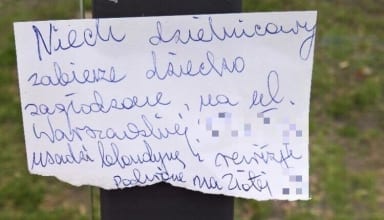 Niech dzielnicowy
zabierze dziecko
zagłodzone, na ul.
Warszawskiej
usadzi blondynę i
Podobne na Złotej